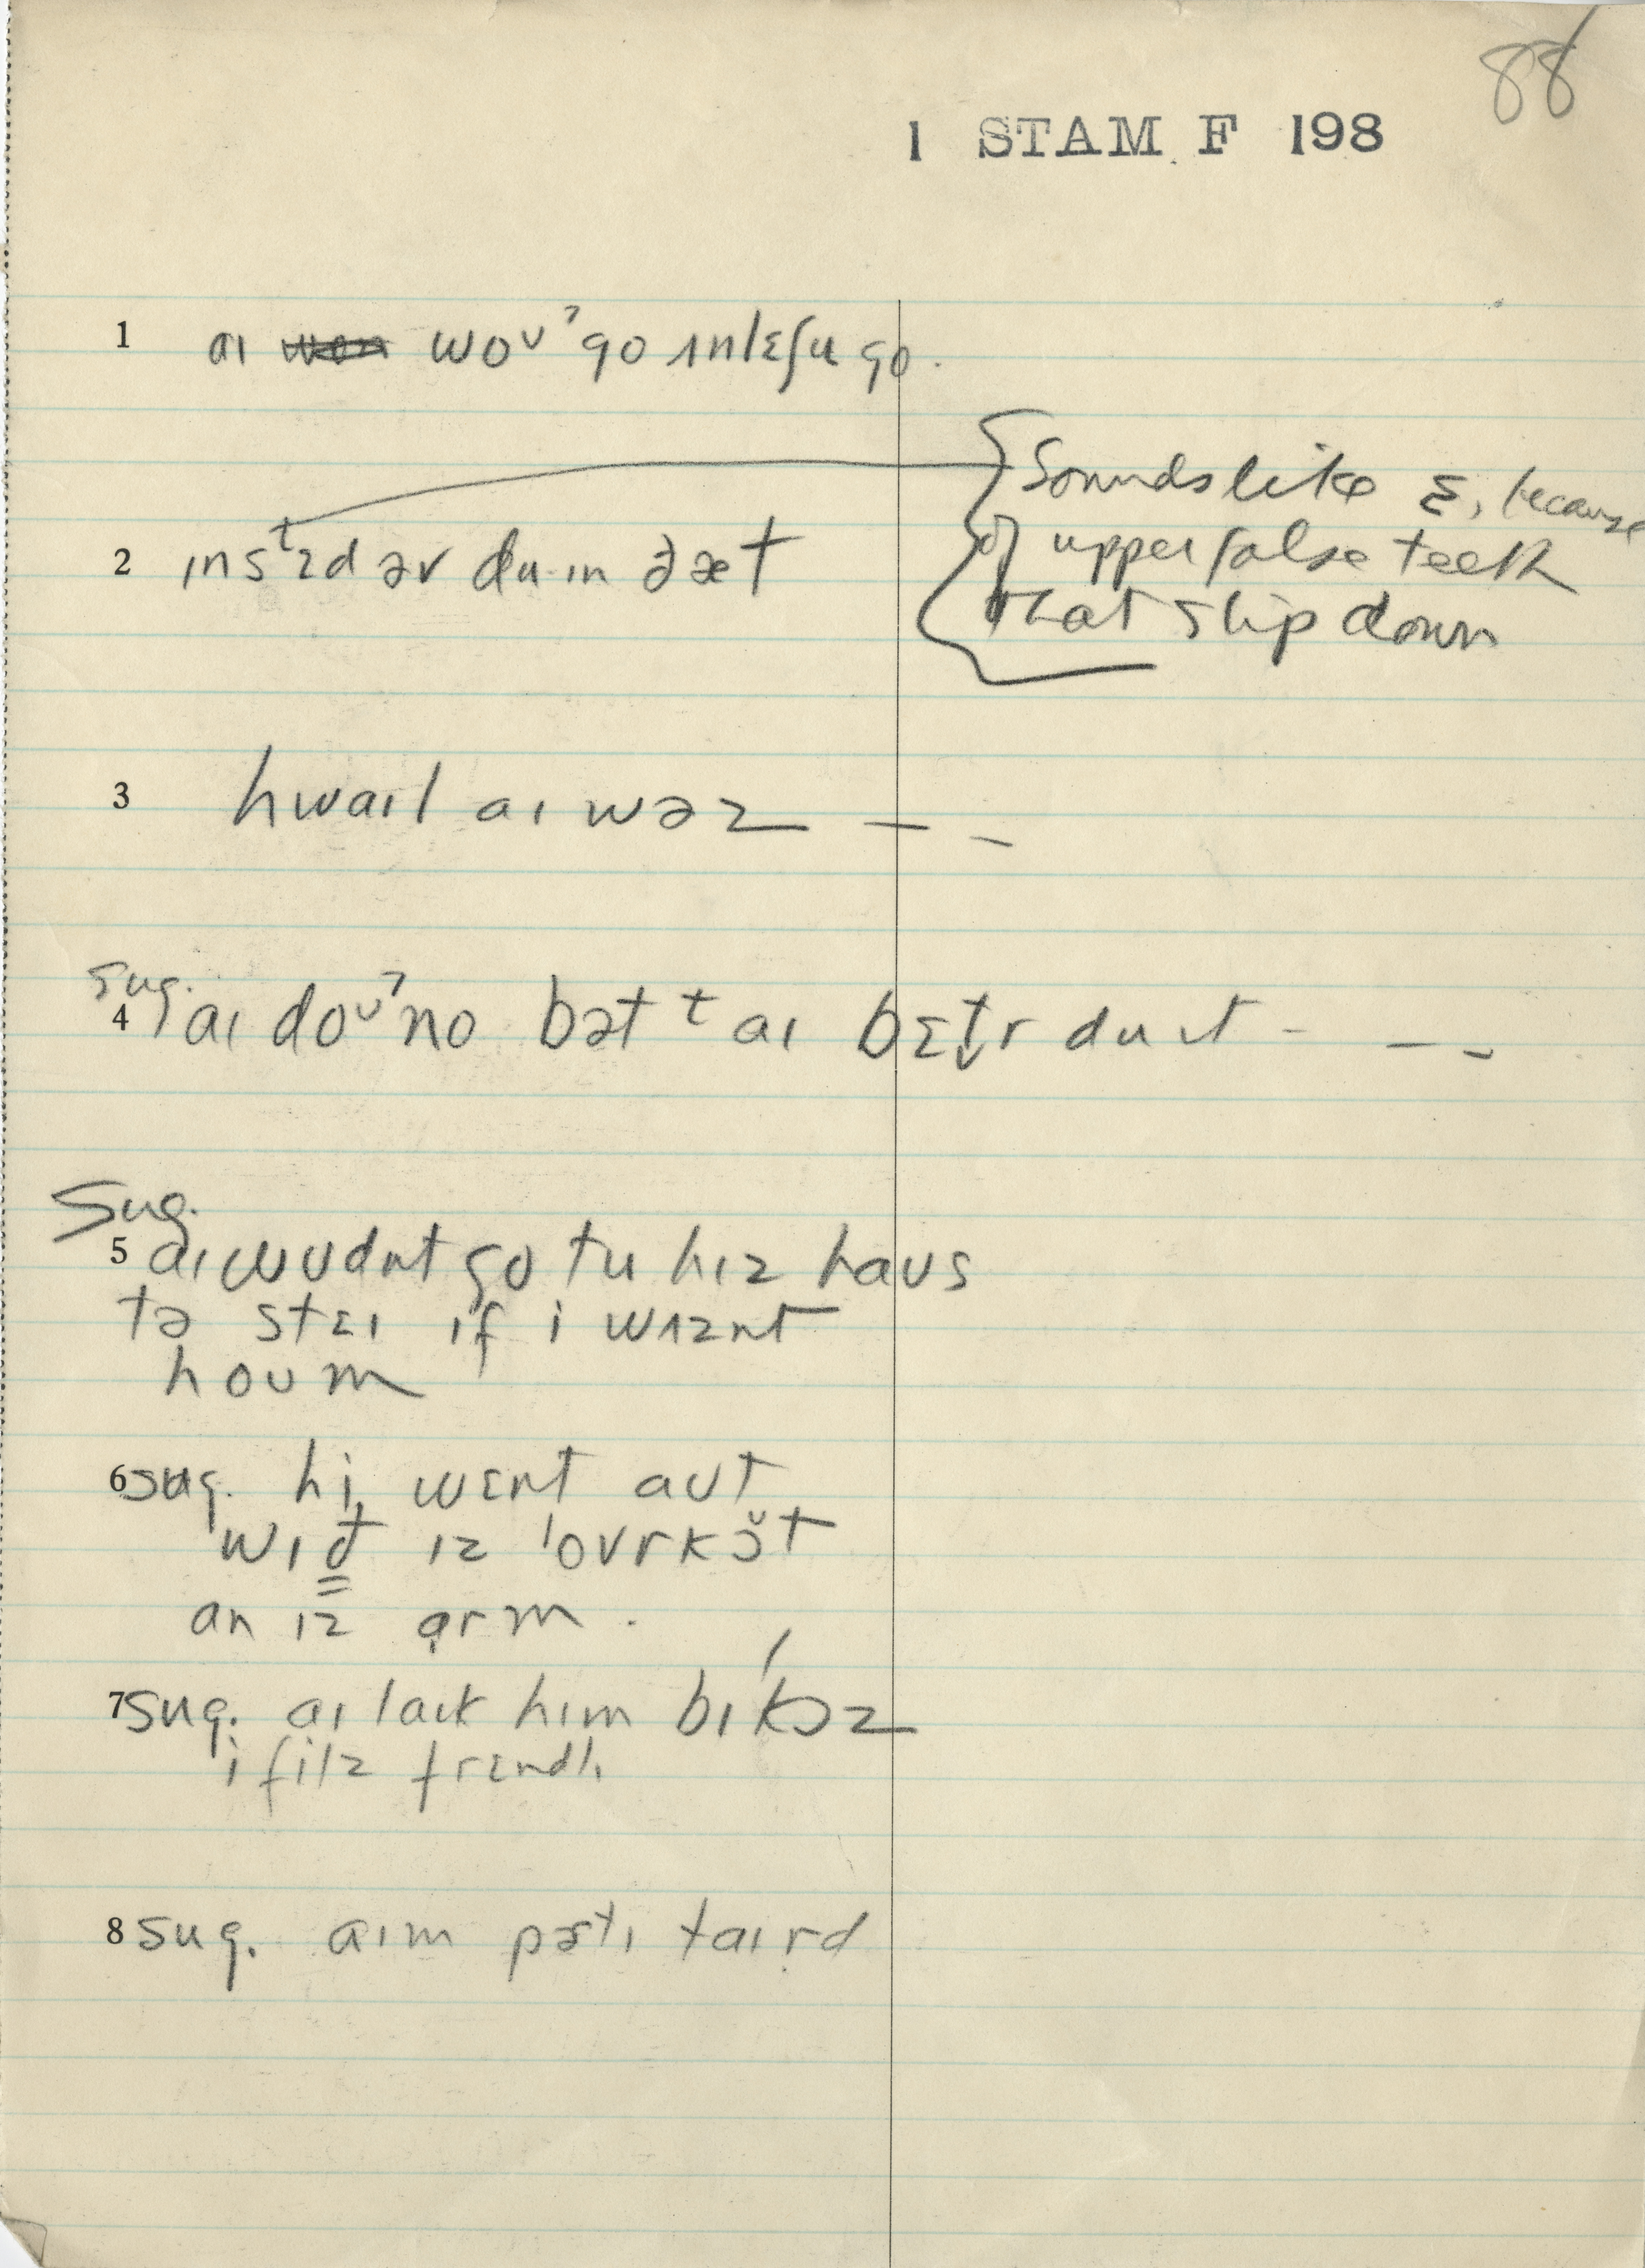 88
1 STAM F 198
1 aɪ woʊˀ go ʌnlɛʃu go.
{Sounds like ɛ, because
of upper false teeth
that slip down
2 ɪnsᵗɛd əv du·ɪn ðæt
3 hwaɪl aɪ wəz — –
Sug.
4 aɪ doʊˀno bət t aɪ bɛt̬r du ɪt - — –
Sug.
5 aɪ wʊdnt go tu hɪz haʊs
tə stɛɪ ɪf i wʌznt
hoʊm
6 sug. hi wɛnt aʊt
wɪð ɪz ˈovrkɔ̆t
an ɪz ɑrm.
7 sug. aɪ laɪk hɪm bɪˈkɔz
i filz frɛndlɪ
8 sug. aɪm pɚtɪ taɪrd